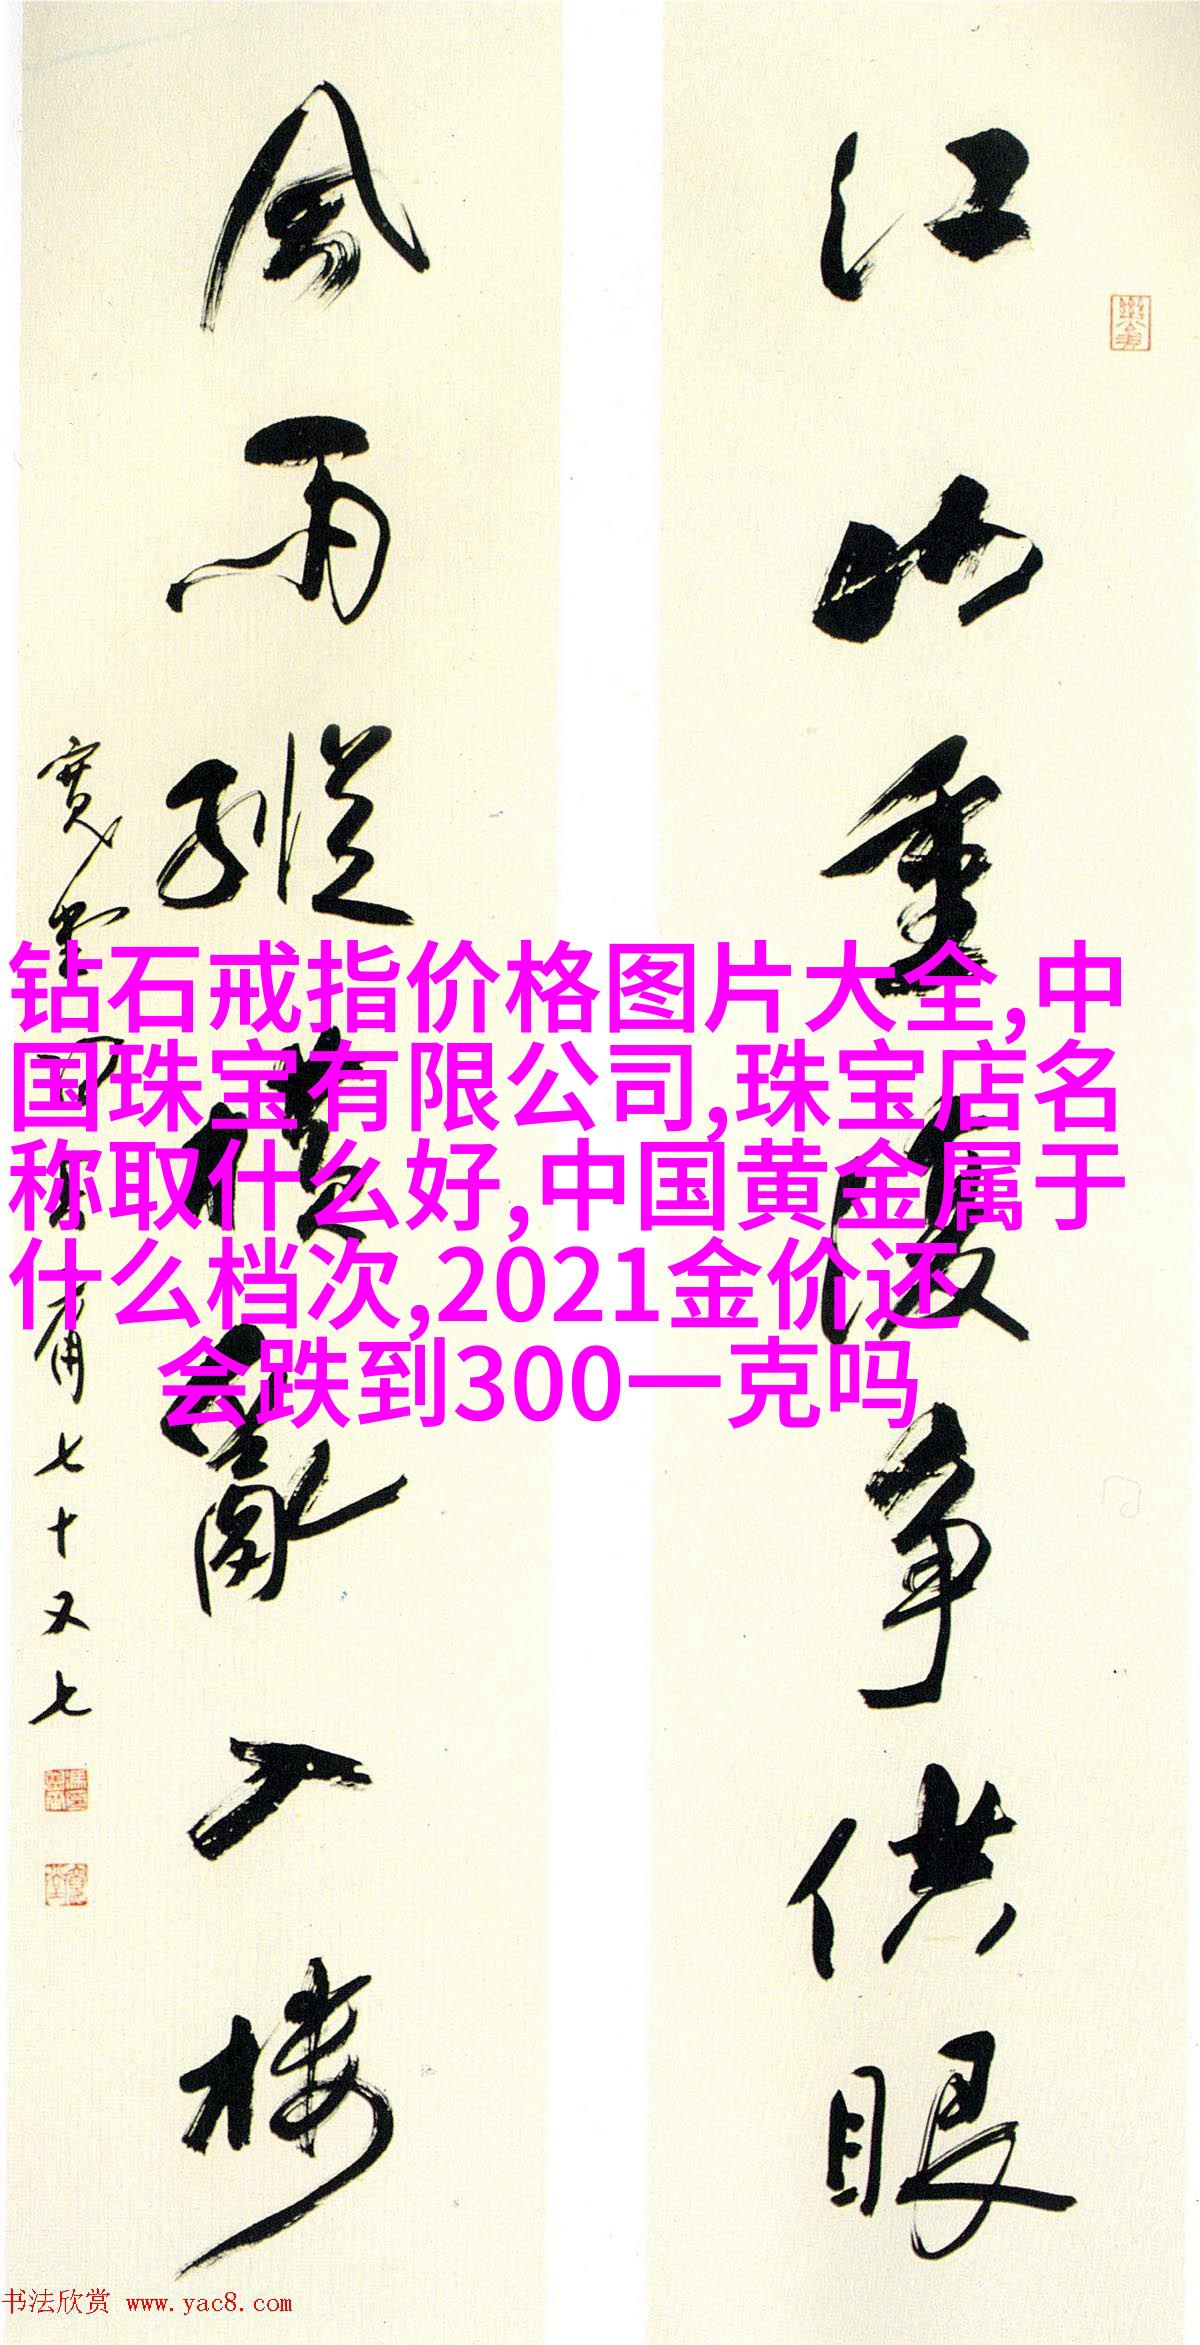 江山重复争供眼
风雨纵横乱入楼
寛堂冯其庸七十又七
钻石戒指价格图片大全,中
国珠宝有限公司,珠宝店名
称取什么好,中国黄金属于
什么档次,2021金价还
会跌到300一克吗
书法欣赏 www.yac8.com